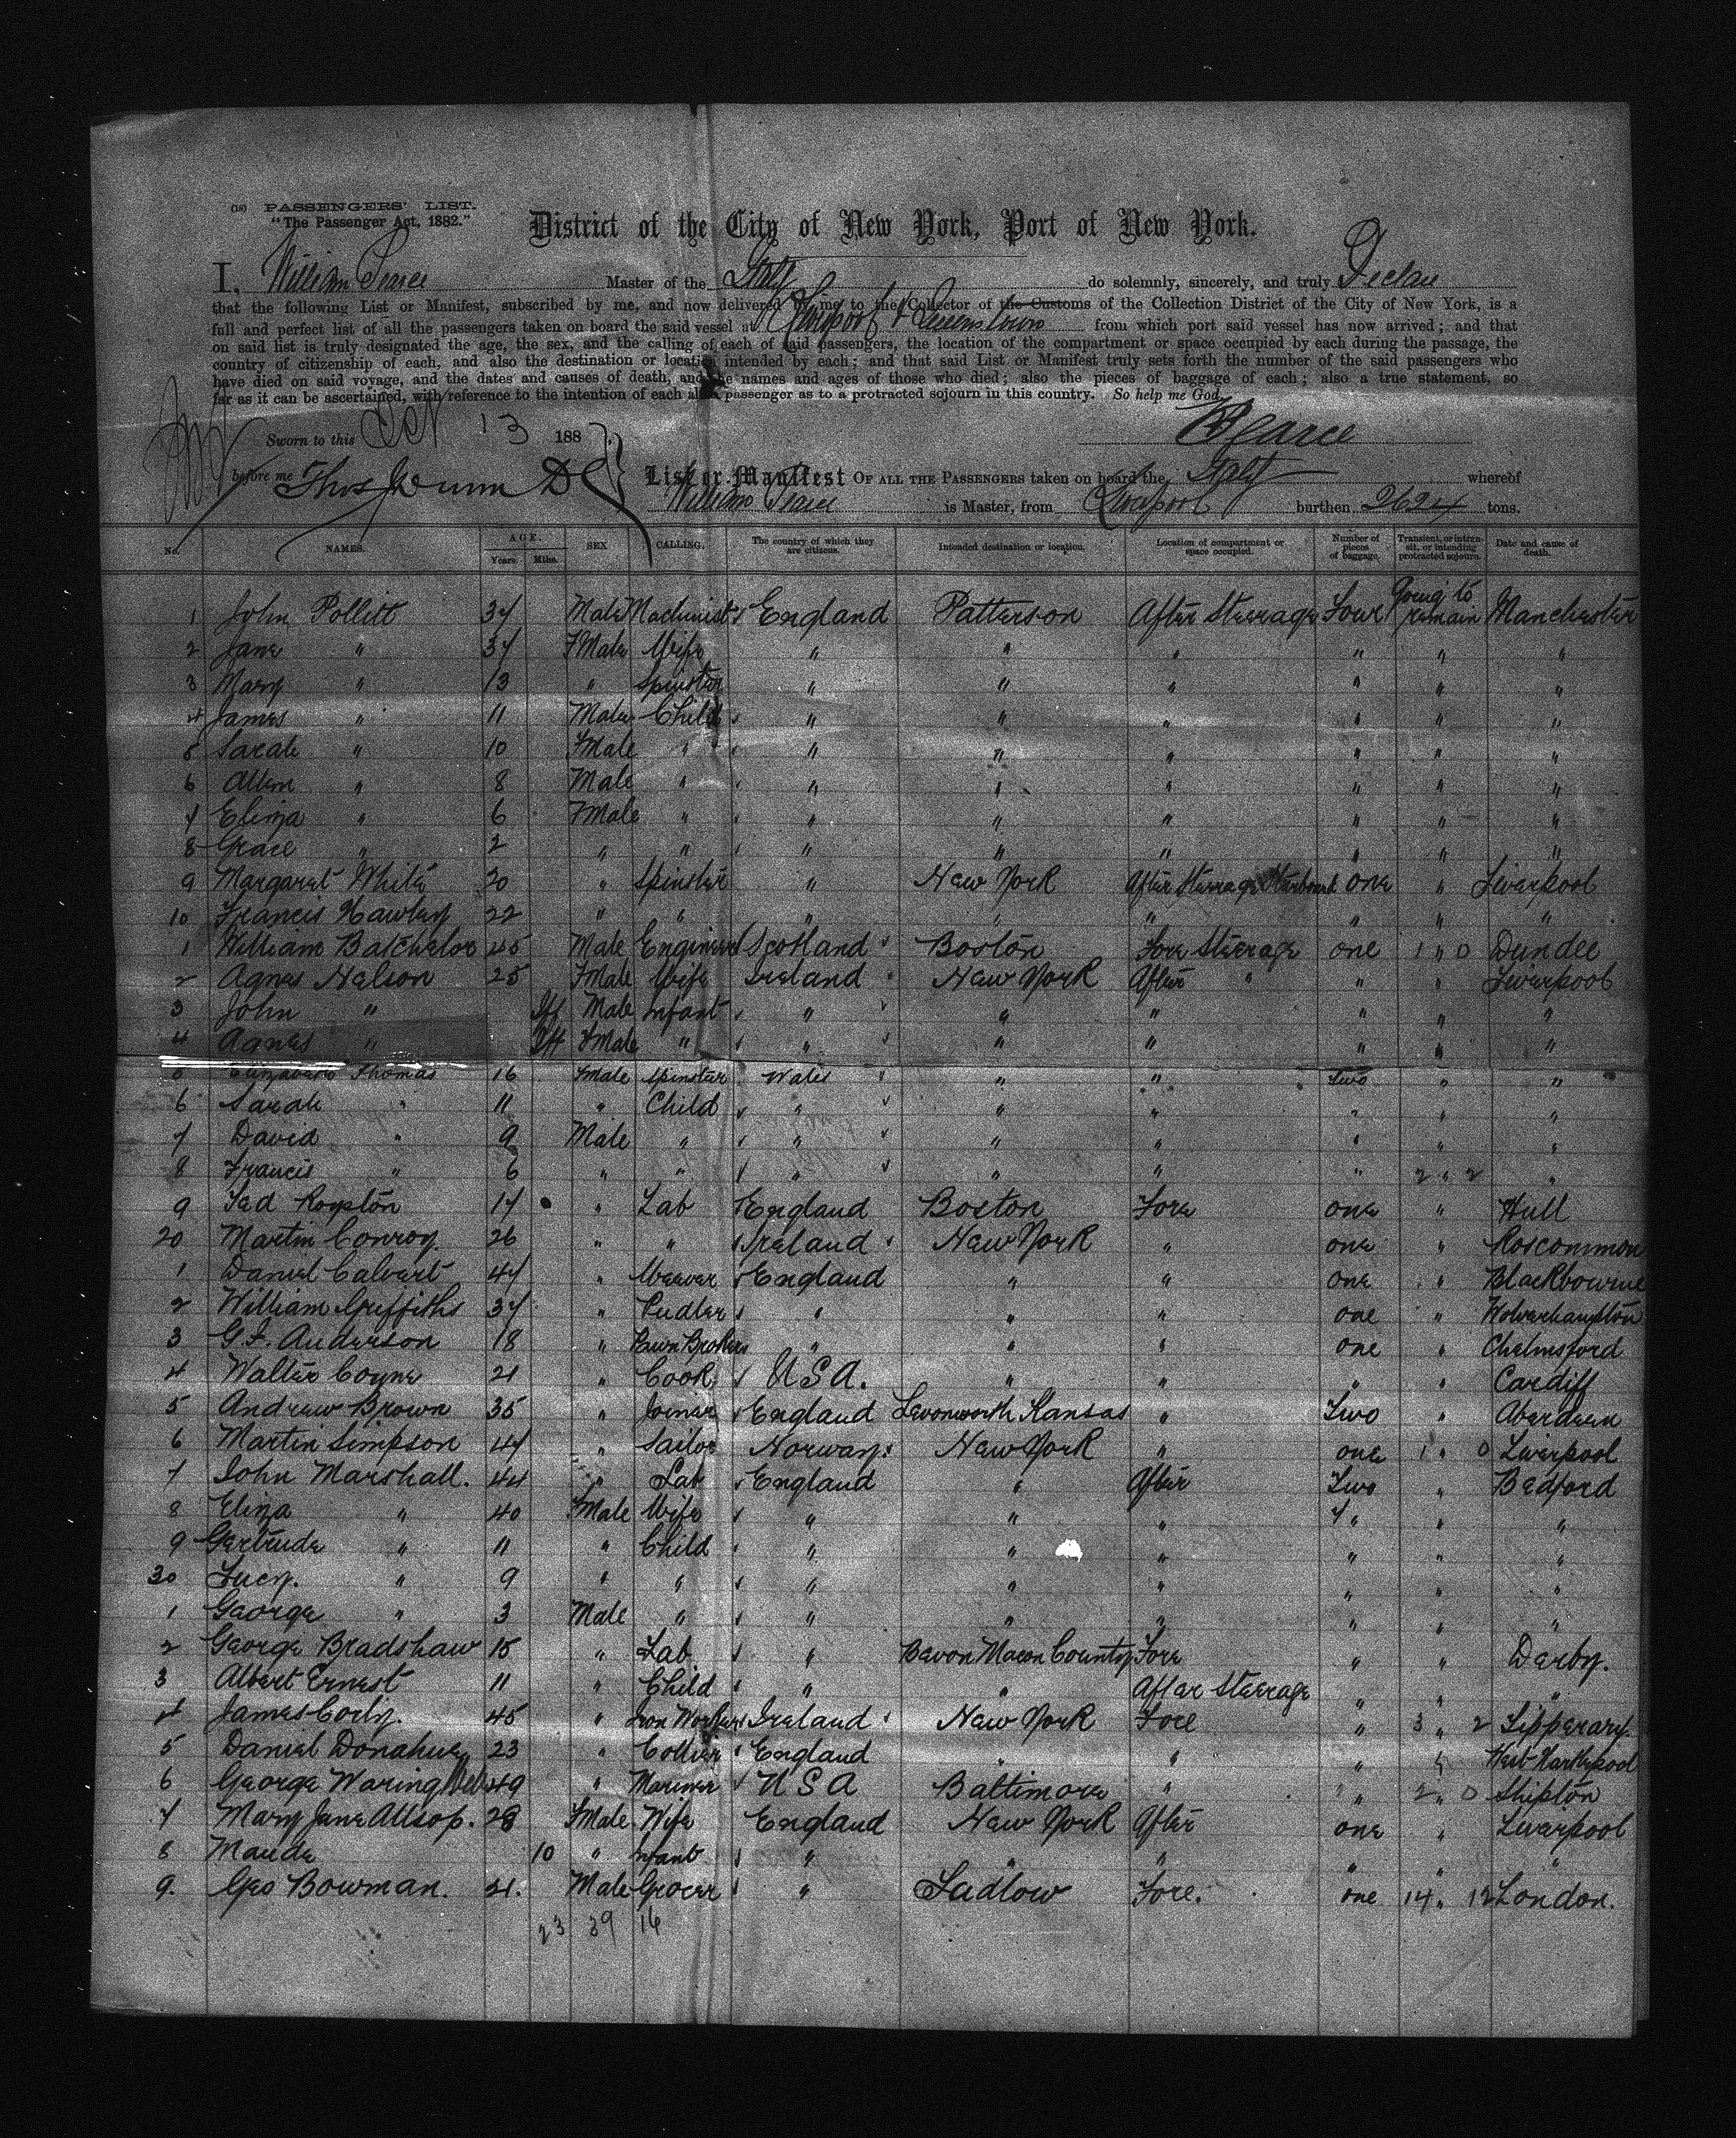 (18) PASSENGERS' LIST.
"The Passenger Act, 1882."
District of the City of New York, Port of New York.
I, William Pearce Master of the Italy do solemnly, sincerely, and truly Declare
that the following List or Manifest, subscribed by me, and now delivered by me to the Collector of the Customs of the Collection District of the City of New York, is a
full and perfect list of all the passengers taken on board the said vessel at Liverpool & Queenstown from which port said vessel has now arrived; and that
on said list is truly designated the age, the sex, and the calling of each of said passengers, the location of the compartment or space occupied by each during the passage, the
country of citizenship of each, and also the destination or location intended by each; and that said List or Manifest truly sets forth the number of the said passengers who
have died on said voyage, and the dates and causes of death, and the names and ages of those who died; also the pieces of baggage of each; also a true statement, so
far as it can be ascertained, with reference to the intention of each alien passenger as to a protracted sojourn in this country. So help me God.
Sworn to this Oct 13 188
WPearce
before me Thos Dunn D C
List or Manifest OF ALL THE PASSENGERS taken on board the Italy whereof
William Pearce is Master, from Liverpool burthen 2624 tons.
No. NAMES. AGE. Years. Mths. SEX CALLING. The country of which they are citizens. Intended destination or location. Location of compartment or space occupied. Number of pieces of baggage. Transient, or intransit, or intending protracted sojourn. Date and cause of death.
1 John Pollitt 34 Male Machinist England Patterson After Steerage Four Going to remain Manchester
2 Jane " 34 FMale Wife " " " " " "
3 Mary " 13 " Spinster " " " " " "
4 James " 11 Male Child " " " " " "
5 Sarah " 10 FMale " " " " " " "
6 Allen " 8 Male " " " " " " "
7 Eliza " 6 FMale " " " " " " "
8 Grace " 2 " " " " " " " "
9 Margaret White 20 " Spinster " New York After Steerage Starboard one " Liverpool
10 Francis Hawley 22 " " " " " " " "
1 William Batchelor 45 Male Engineer Scotland Boston Fore Steerage one 1 " 0 Dundee
2 Agnes Nelson 25 FMale Wife Ireland New York After " " " Liverpool
3 John " Male Infant " " " " " "
4 Agnes " FMale " " " " " " "
5 Elizabeth Thomas 16 FMale Spinster Wales " " Two " "
6 Sarah " 11 " Child " " " " " "
7 David " 9 Male " " " " " " "
8 Francis " 6 " " " " " " 2 " 2 "
9 Ted Royston 17 " Lab England Boston Fore one " Hull
20 Martin Conroy. 26 " " Ireland New York " one " Roscommon
1 Daniel Calvert 47 " Weaver England " " one " Blackbourne
2 William Griffiths 37 " Pudler " " " one " Wolverhampton
3 G.F. Anderson 18 " Pawn Brokers " " " one " Chelmsford
4 Walter Coyne 21 " Cook U.S.A. " " " " Cardiff
5 Andrew Brown 35 " Joiner England Levonworth Kansas " Two " Aberdeen
6 Martin Simpson 47 " Sailor Norway New York " one 1 " 0 Liverpool
7 John Marshall. 44 " Lab England " After Two " Bedford
8 Eliza " 40 FMale Wife " " " " " "
9 Gertrude " 11 " Child " " " " " "
30 Lucy. " 9 " " " " " " " "
1 George " 3 Male " " " " " " "
2 George Bradshaw 15 " Lab " Bevon Macon County Fore " " Derby.
3 Albert Ernest 11 " Child " " After Steerage " " "
4 James Corly. 45 " Iron Worker Ireland New York Fore " 3 " 2 Tipperary.
5 Daniel Donahue 23 " Collier England " " " " West Hartlepool
6 George Waring 49 " Mariner U S A Baltimore " " 2 " 0 Shipton
7 Mary Jane Allsop. 28 FMale Wife England New York After one " Liverpool
8 Maude 10 " Infant " " " " " "
9. Geo Bowman. 21. Male Grocer " Ludlow Fore. one 14 " 12 London.
23 39 16